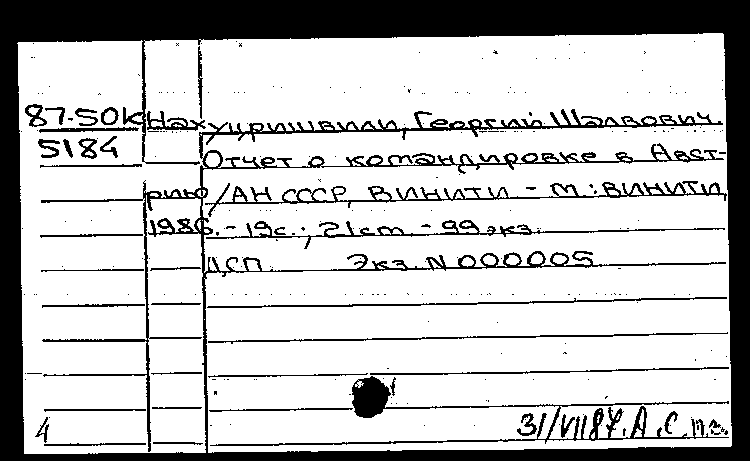 87-50К Нахуцришвили, Георгий Шалвович.
5184 Отчет о командировке в Авст-
рию / АН СССР, ВИНИТИ - М.: ВИНИТИ,
1986. - 19с.; 21см. - 99 экз.
ДСП. Экз. N 000005
4 31/VII 87. А.С. п.з.